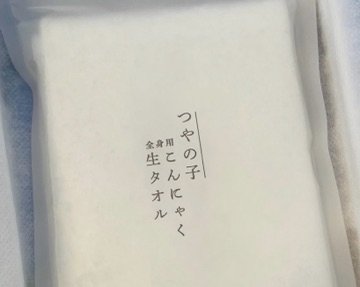 つやの子
こんにゃく
全身用
生タオル